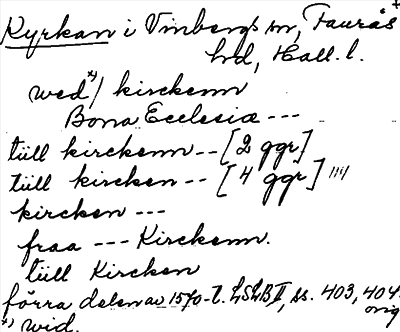 Kyrkan i Vinbergs sn, Faurås
hd, Hall. l.
wed*) kirckenn
Bona Ecclesiæ ---
tüll kirckenn -- [2 ggr]
tüll kircken -- [4 ggr]
kircken ---
fraa --- Kirckenn.
tüll Kircken
förra delen av 1570-t. LSLB II, ss. 403, 404.
orig
*) wid.